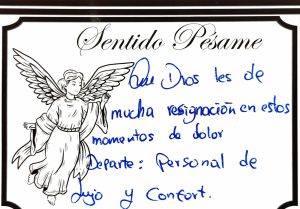 Sentido Pésame
Que Dios les de
mucha resignación en estos
momentos de dolor
Departe: Personal de
Lujo y Confort.